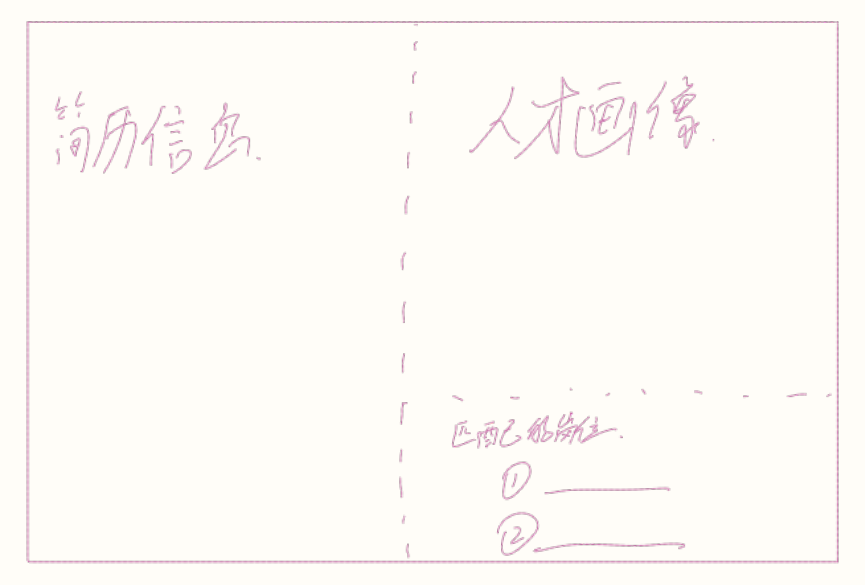 简历信息.
人才画像.
匹配的岗位.
①
②